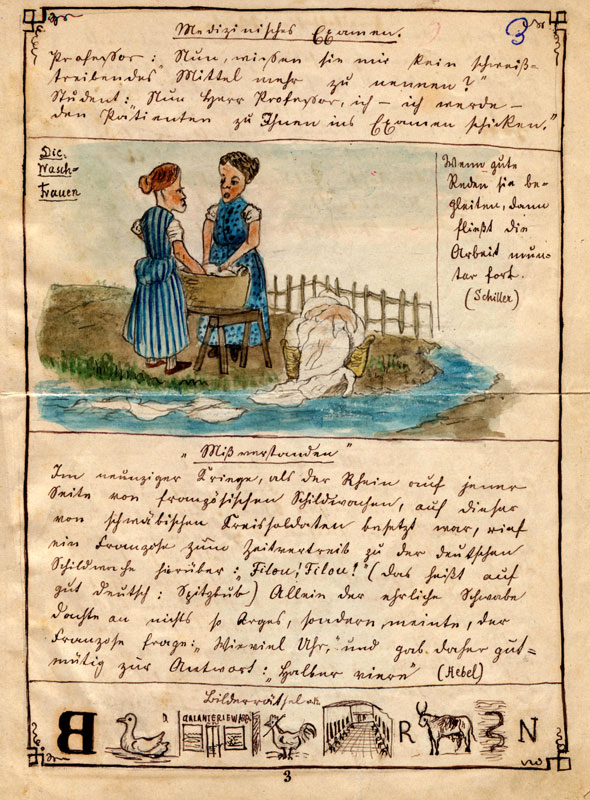 3
Medizinisches Examen.
Professor: „Nun, wissen sie mir kein schweiß=
treibendes Mittel mehr zu nennen?"
Student: „Nun Herr Professor, ich – ich werde –
den Patienten zu Ihnen ins Examen schicken."
Die
Wasch-
frauen
Wenn gute
Reden sie be-
gleiten, dann
fließt die
Arbeit mun-
ter fort.
(Schiller)
„Mißverstanden"
Im neunziger Kriege, als der Rhein auf jener
Seite von französischen Schildwachen, auf dieser
von schwäbischen Kreissoldaten besetzt war, rief
ein Franzose zum Zeitvertreib zu der deutschen
Schildwache herüber: „Filou! Filou!" (Das heißt auf
gut deutsch: Spitzbub) Allein der ehrliche Schwabe
dachte an nichts so Arges, sondern meinte, der
Franzose frage: „Wieviel Uhr," und gab daher gut=
mütig zur Antwort: „Halber viere" (Hebel)
Bilderrätsel
B
GALANTERIEWAREN
R
N
3